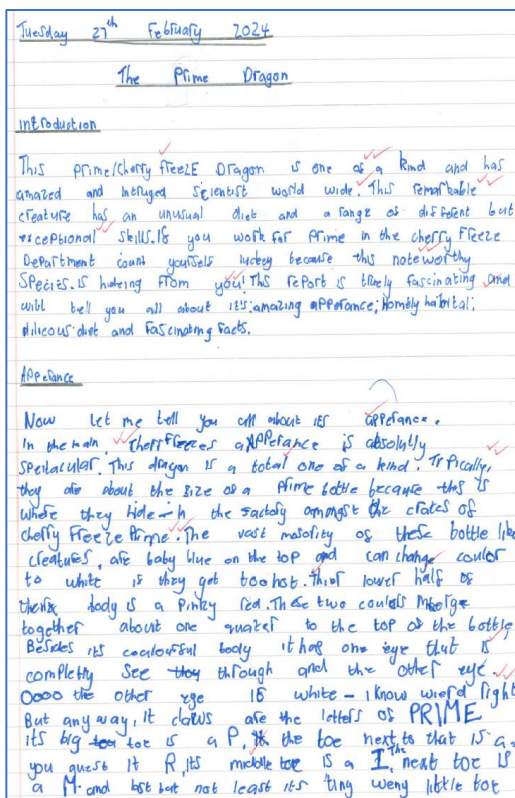 Tuesday 27th February 2024
The Prime Dragon
introduction
This prime/cherry freeze Dragon is one of a kind and has
amazed and intruged scientist world wide. This remarkable
creature has an unusual diet and a range of different but
exceptional skills. If you work for Prime in the cherry freeze
Department count yourself luckey because this noteworthy
species. is hideing from you! This report is truely fascinating and
will tell you all about it's: amazing apperance; homely habitat;
dilicous diet and fascinating facts.
Apperance
Now let me tell you all about its apperance.
In the main, apperance is absolutly
spectacular. This dragon is a total one of a kind. Typically,
they are about the size of a prime bottle because this is
where they hide in the factory amongst the crates of
cherry freeze Prime. The vast majority of these bottle like
creatures, are baby blue on the top and can change coulor
to white if they get too hot. lower half of
body is a pinky red. These two coulors merge
together about one quater to the top of the bottle.
Besides its coulourful body it has one eye that is
completly see through and the other eye.
Oooo the other eye is white - I know wierd right
But any way, it claws are the letters of PRIME
its big toe is a P, the toe next to that is a..
you guest it R, its middle toe is a I. The next toe is
a M. and last but not least its tiny weny little toe